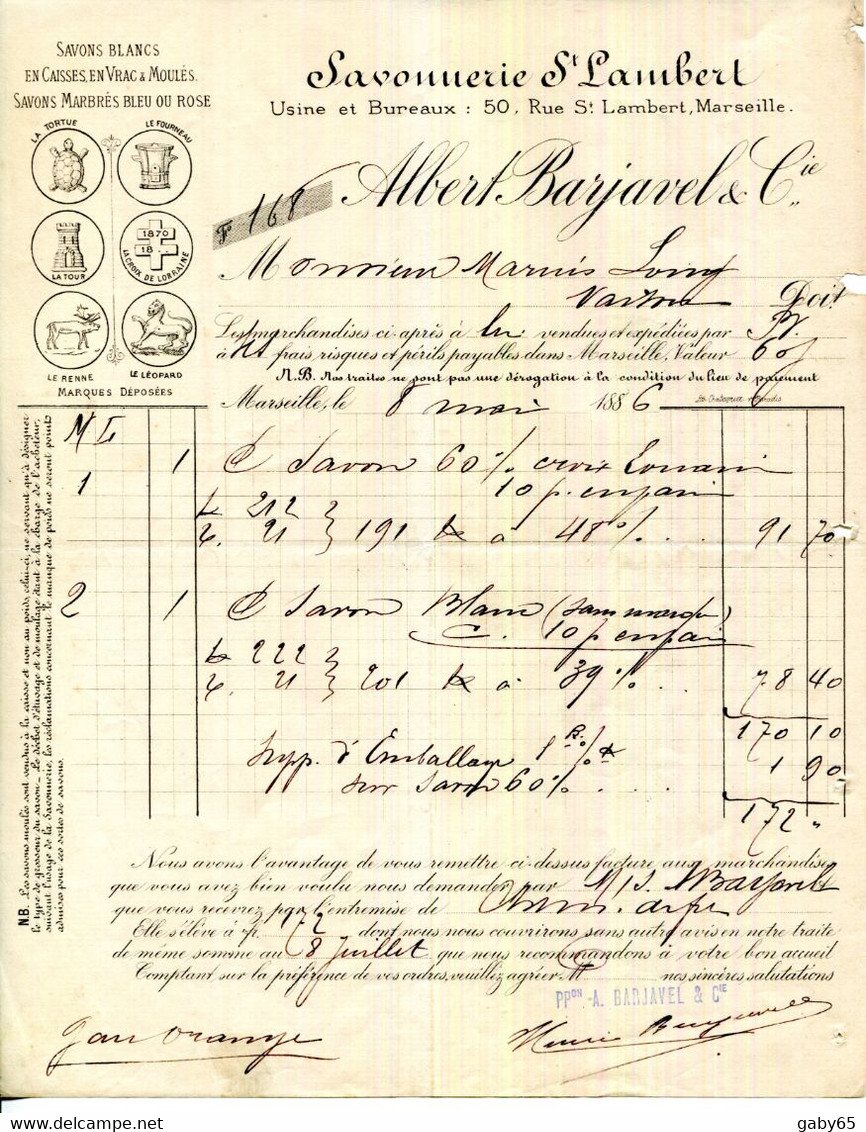 SAVONS BLANCS
EN CAISSES, EN VRAC & MOULÉS.
SAVONS MARBRÉS BLEU OU ROSE
LA TORTUE
LE FOURNEAU
1870
18
LA TOUR
LA CROIX DE LORRAINE
LE RENNE
LE LÉOPARD
MARQUES DÉPOSÉES
Savonnerie St Lambert
Usine et Bureaux : 50, Rue St. Lambert, Marseille.
Albert Barjavel & Cie
Fo 168
Monsieur Marius
Doit
Les marchandises ci-après à lui vendues et expédiées par P.V.
à ses frais, risques et périls payables dans Marseille. Valeur 60 j
N.B. Nos traites ne sont pas une dérogation à la condition du lieu de paiement
Marseille, le 8 mai 1886
M L
1 1 C Savon 60 % croix Lorraine
10 p. en pain
B 212
T. 21 } 191 K à 48 % ... 91 70
2 1 C Savon Blanc (sans marque)
C. 10 p en pain
B 222
T. 21 } 201 K à 39 % ... 78 40
170 10
Supp. d'Emballage 1 % K 1 90
sur Savon 60 % ...
172 "
N.B. Les savons moulés sont vendus à la caisse et non au poids, celui-ci, ne servant qu'à désigner
le type de grosseur du savon. Le déchet d'étuvage et de moulage étant à la charge de l'acheteur,
suivant l'usage de la Savonnerie, les réclamations concernant le manque de poids ne seront point
admises pour ces sortes de savons.
Nous avons l'avantage de vous remettre ci-dessus facture aux marchandises
que vous avez bien voulu nous demander par M/S. Barjavel
que vous recevrez par l'entremise de
Elle s'élève à F. 172 dont nous nous couvrirons sans autre avis en notre traite
de même somme au 8 Juillet que nous recommandons à votre bon accueil
Comptant sur la préférence de vos ordres, veuillez agréer M nos sincères salutations
PPON A. BARJAVEL & CIE
gare Orange
delcampe.net
gaby65